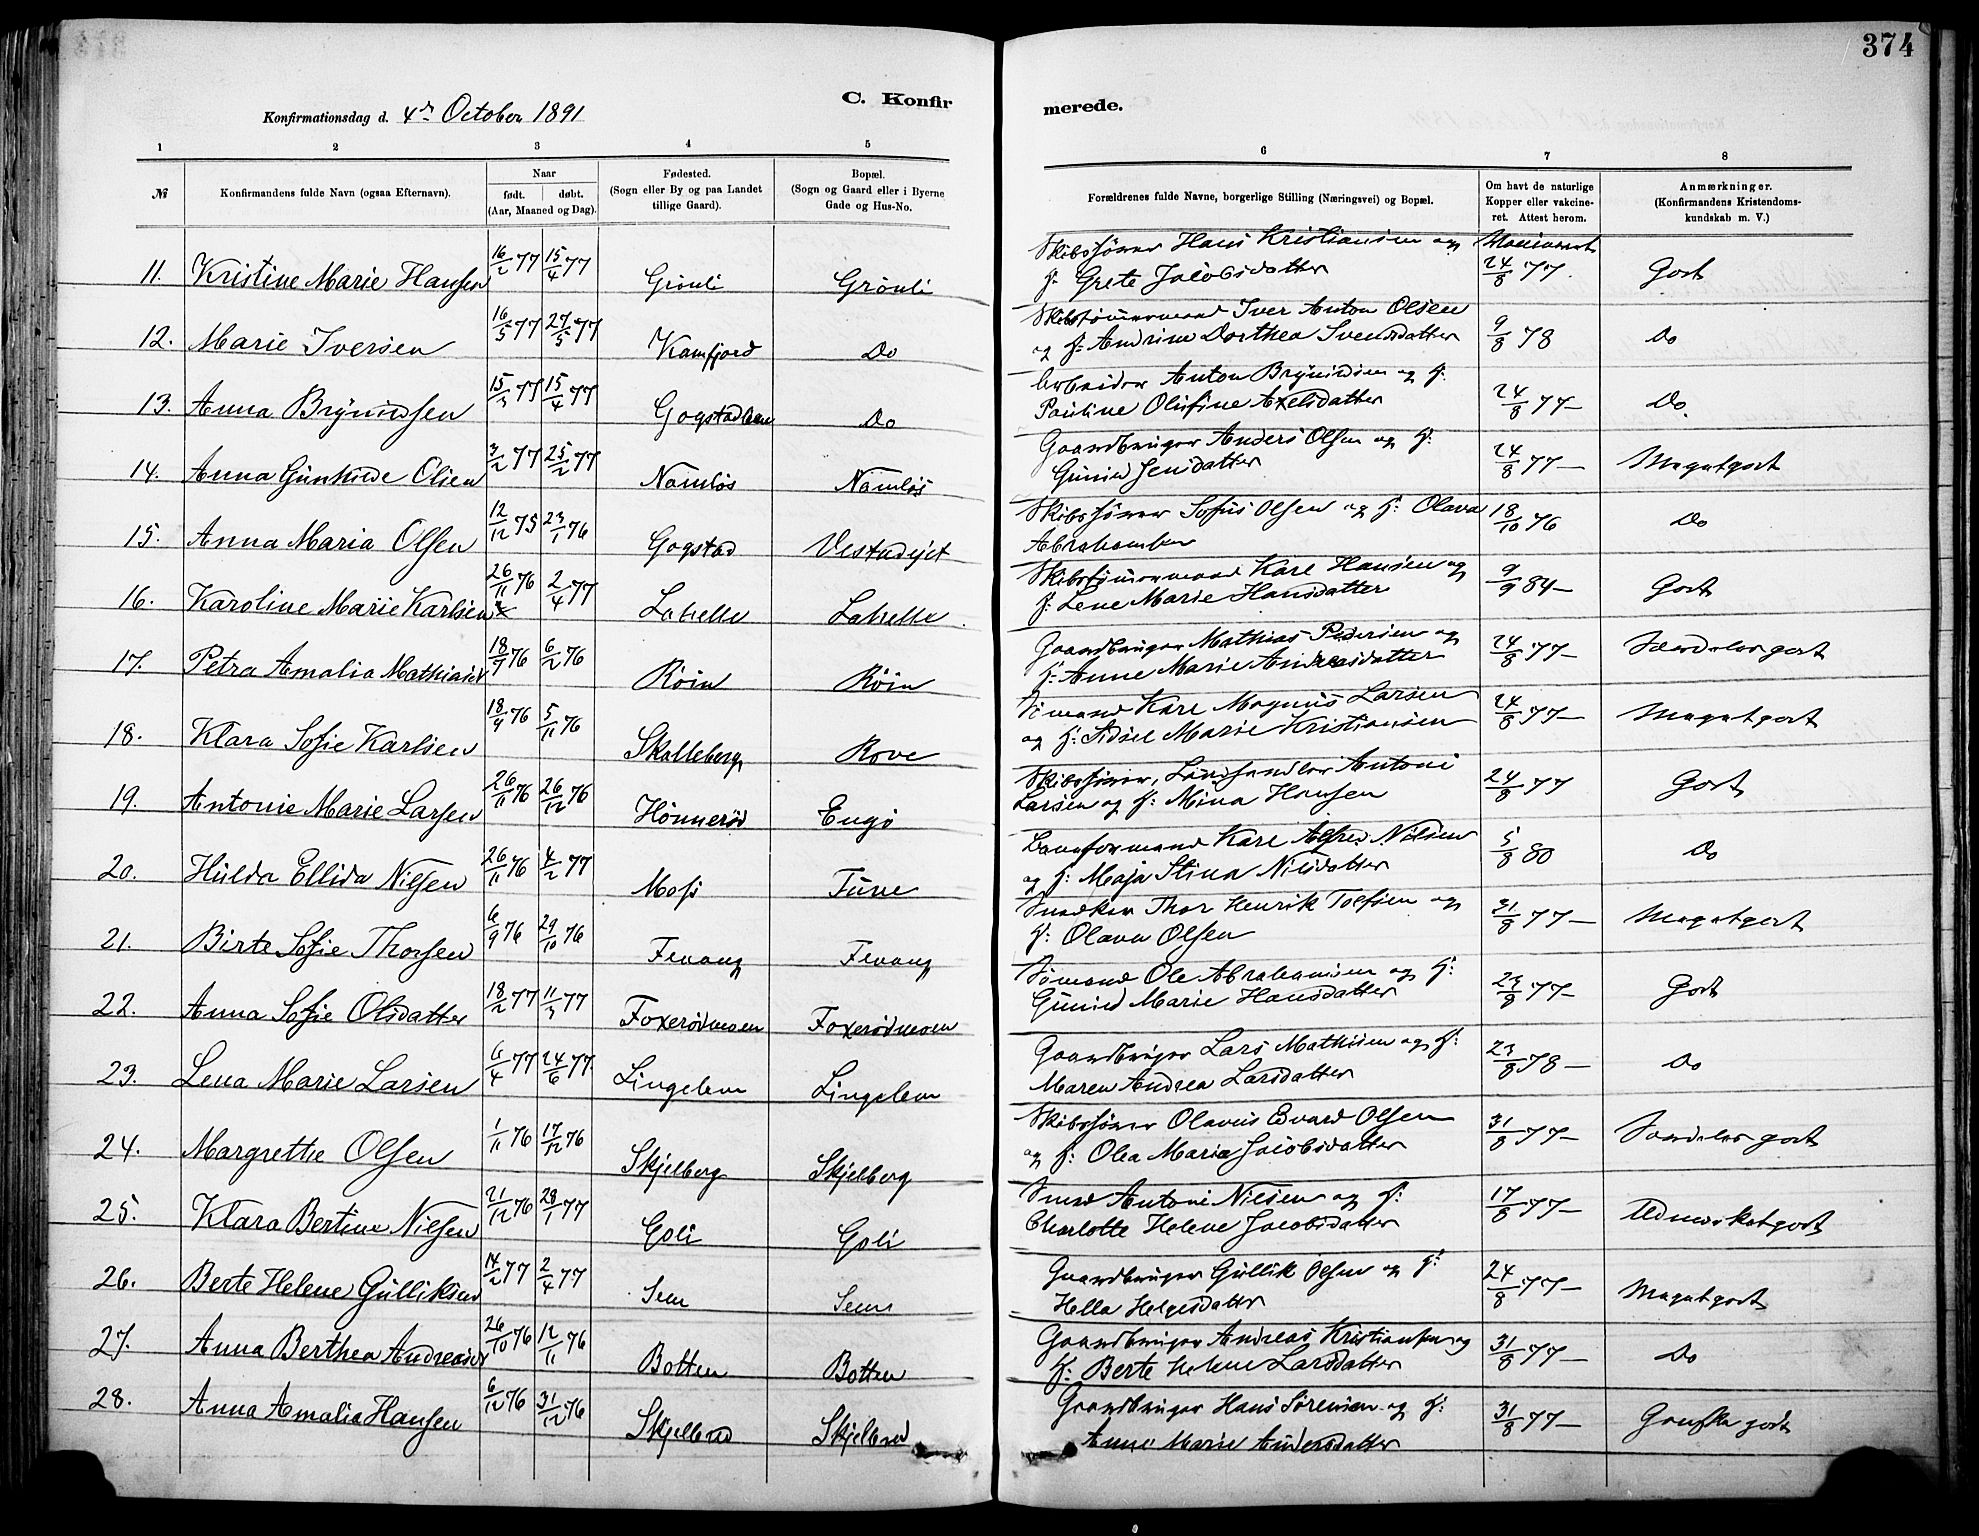 374
C. Konfir
merede.
Konfirmationsdag d. 4de October 1891
1 2 3 4 5 6 7 8
№ Konfirmandens fulde Navn (ogsaa Efternavn). Naar født. døbt. (Aar, Maaned og Dag).
Fødested. (Sogn eller By og paa Landet tillige Gaard).
Bopæl. (Sogn og Gaard eller i Byerne Gade og Hus-No.
Forældrenes fulde Navne, borgerlige Stilling (Næringsvei) og Bopæl.
Om havt de naturlige Kopper eller vakcineret. Attest herom.
Anmærkninger. (Konfirmandens Kristendomskundskab m. V.)
11. Kristine Marie Hansen 16/2 77 15/4 77 Grönli Grönli
Skibsfører Hans Kristiansen og
h: Grete Jacobsdatter 24/8 77. Godt
12. Marie Iversen 16/5 77 27/5 77 Kamfjord Do
Skibstømmermand Iver Anton Olsen
og h: Andrine Dorthea Svendsdatter 9/8 78 Do
13. Anna Brynildsen 15/3 77 15/4 77 Do
Arbeider Anton Brynildsen og h:
Pauline Olufine Axelsdatter 24/8 77 Do.
14. Anna Gunhilde Olsen 3/2 77 25/2 77 Namløs Namløs
Gaardbruger Anders Olsen og h:
Gunild Jensdatter 24/8 77 Megetgodt
15. Anna Maria Olsen 12/12 75 23/1 76 Gogstad
Skibsfører Sofus Olsen og h: Olava
Abrahamsen 18/10 76 Do
16. Karoline Marie Karlsen 26/11 76 2/4 77 Lahelle Lahelle
Skibstømmermand Karl Hansen og
h: Lene Marie Hansdatter 9/9 84 Godt
17. Petra Amalia Mathiasen 76 76 Röin Röin
Gaardbruger Mathias Pedersen og
h: Anne Marie Andreasdatter 24/8 77 Særdeles godt
18. Klara Sofie Karlsen 18/9 76 5/11 76 Skalleberg Rove
Sömand Karl Magnus Larsen
og h: Marie Kristiansen 24/8 77 Megetgodt
19. Antonie Marie Larsen 26/11 76 26/12 76 Hönneröd Engö
Skibsfører, Landhandler Antoni
Larsen og h: Mina Hansen 24/8 77 Godt
20. Hulda Ellida Nilsen 26/11 76 4/2 77 Moss Tune
Karl Alfred Nilsen
og h: Maja Stina Nilsdatter 5/8 80 Do
21. Birte Sofie Thorsen 6/9 76 29/10 76 Fevang Fevang
Snedker Thor Henrik Tolfsen og
h: Olava Olsen 31/8 77 Megetgodt
22. Anna Sofie Olsdatter 18/2 77 11/3 77 Foxerødmoen Foxerødmoen
Sømand Ole Abrahamsen og h:
Gunild Marie Hansdatter 77 Godt
23. Lena Marie Larsen 6/4 77 24/6 77. Lingelem Lingelem
Gaardbruger Lars Mathisen og h:
Maren Andrea Larsdatter 23/8 78 Do
24. Margrethe Olsen 1/11 76 17/12 76 Skjelberg Skjelberg
Skibsfører Olavus Edvard Olsen
og h: Olea Maria Jacobsdatter 31/8 77 Særdeles godt
25. Klara Bertine Nilsen 21/12 76 28/1 77 Goli Goli
Smed Antoni Nilsen og h:
Charlotte Helene Jacobsdatter 17/8 77 Udmerketgodt
26. Berte Helene Gulliksen 14/2 77 2/4 77 Sem Sem
Gaardbruger Gullik Olsen og h:
Hella Helgesdatter 24/8 77 Megetgodt
27. Anna Berthea Andreasen 26/10 76 12/11 76 Botten Botten
Gaardbruger Andreas Kristiansen og
h: Berte Helene Larsdatter 31/8 77 Do
28. Anna Amalia Hansen 6/12 76 31/12 76 Skjelbred Skjelbred
Gaardbruger Hans Sörensen og h:
Anne Marie Andersdatter 31/8 77 Ganske godt